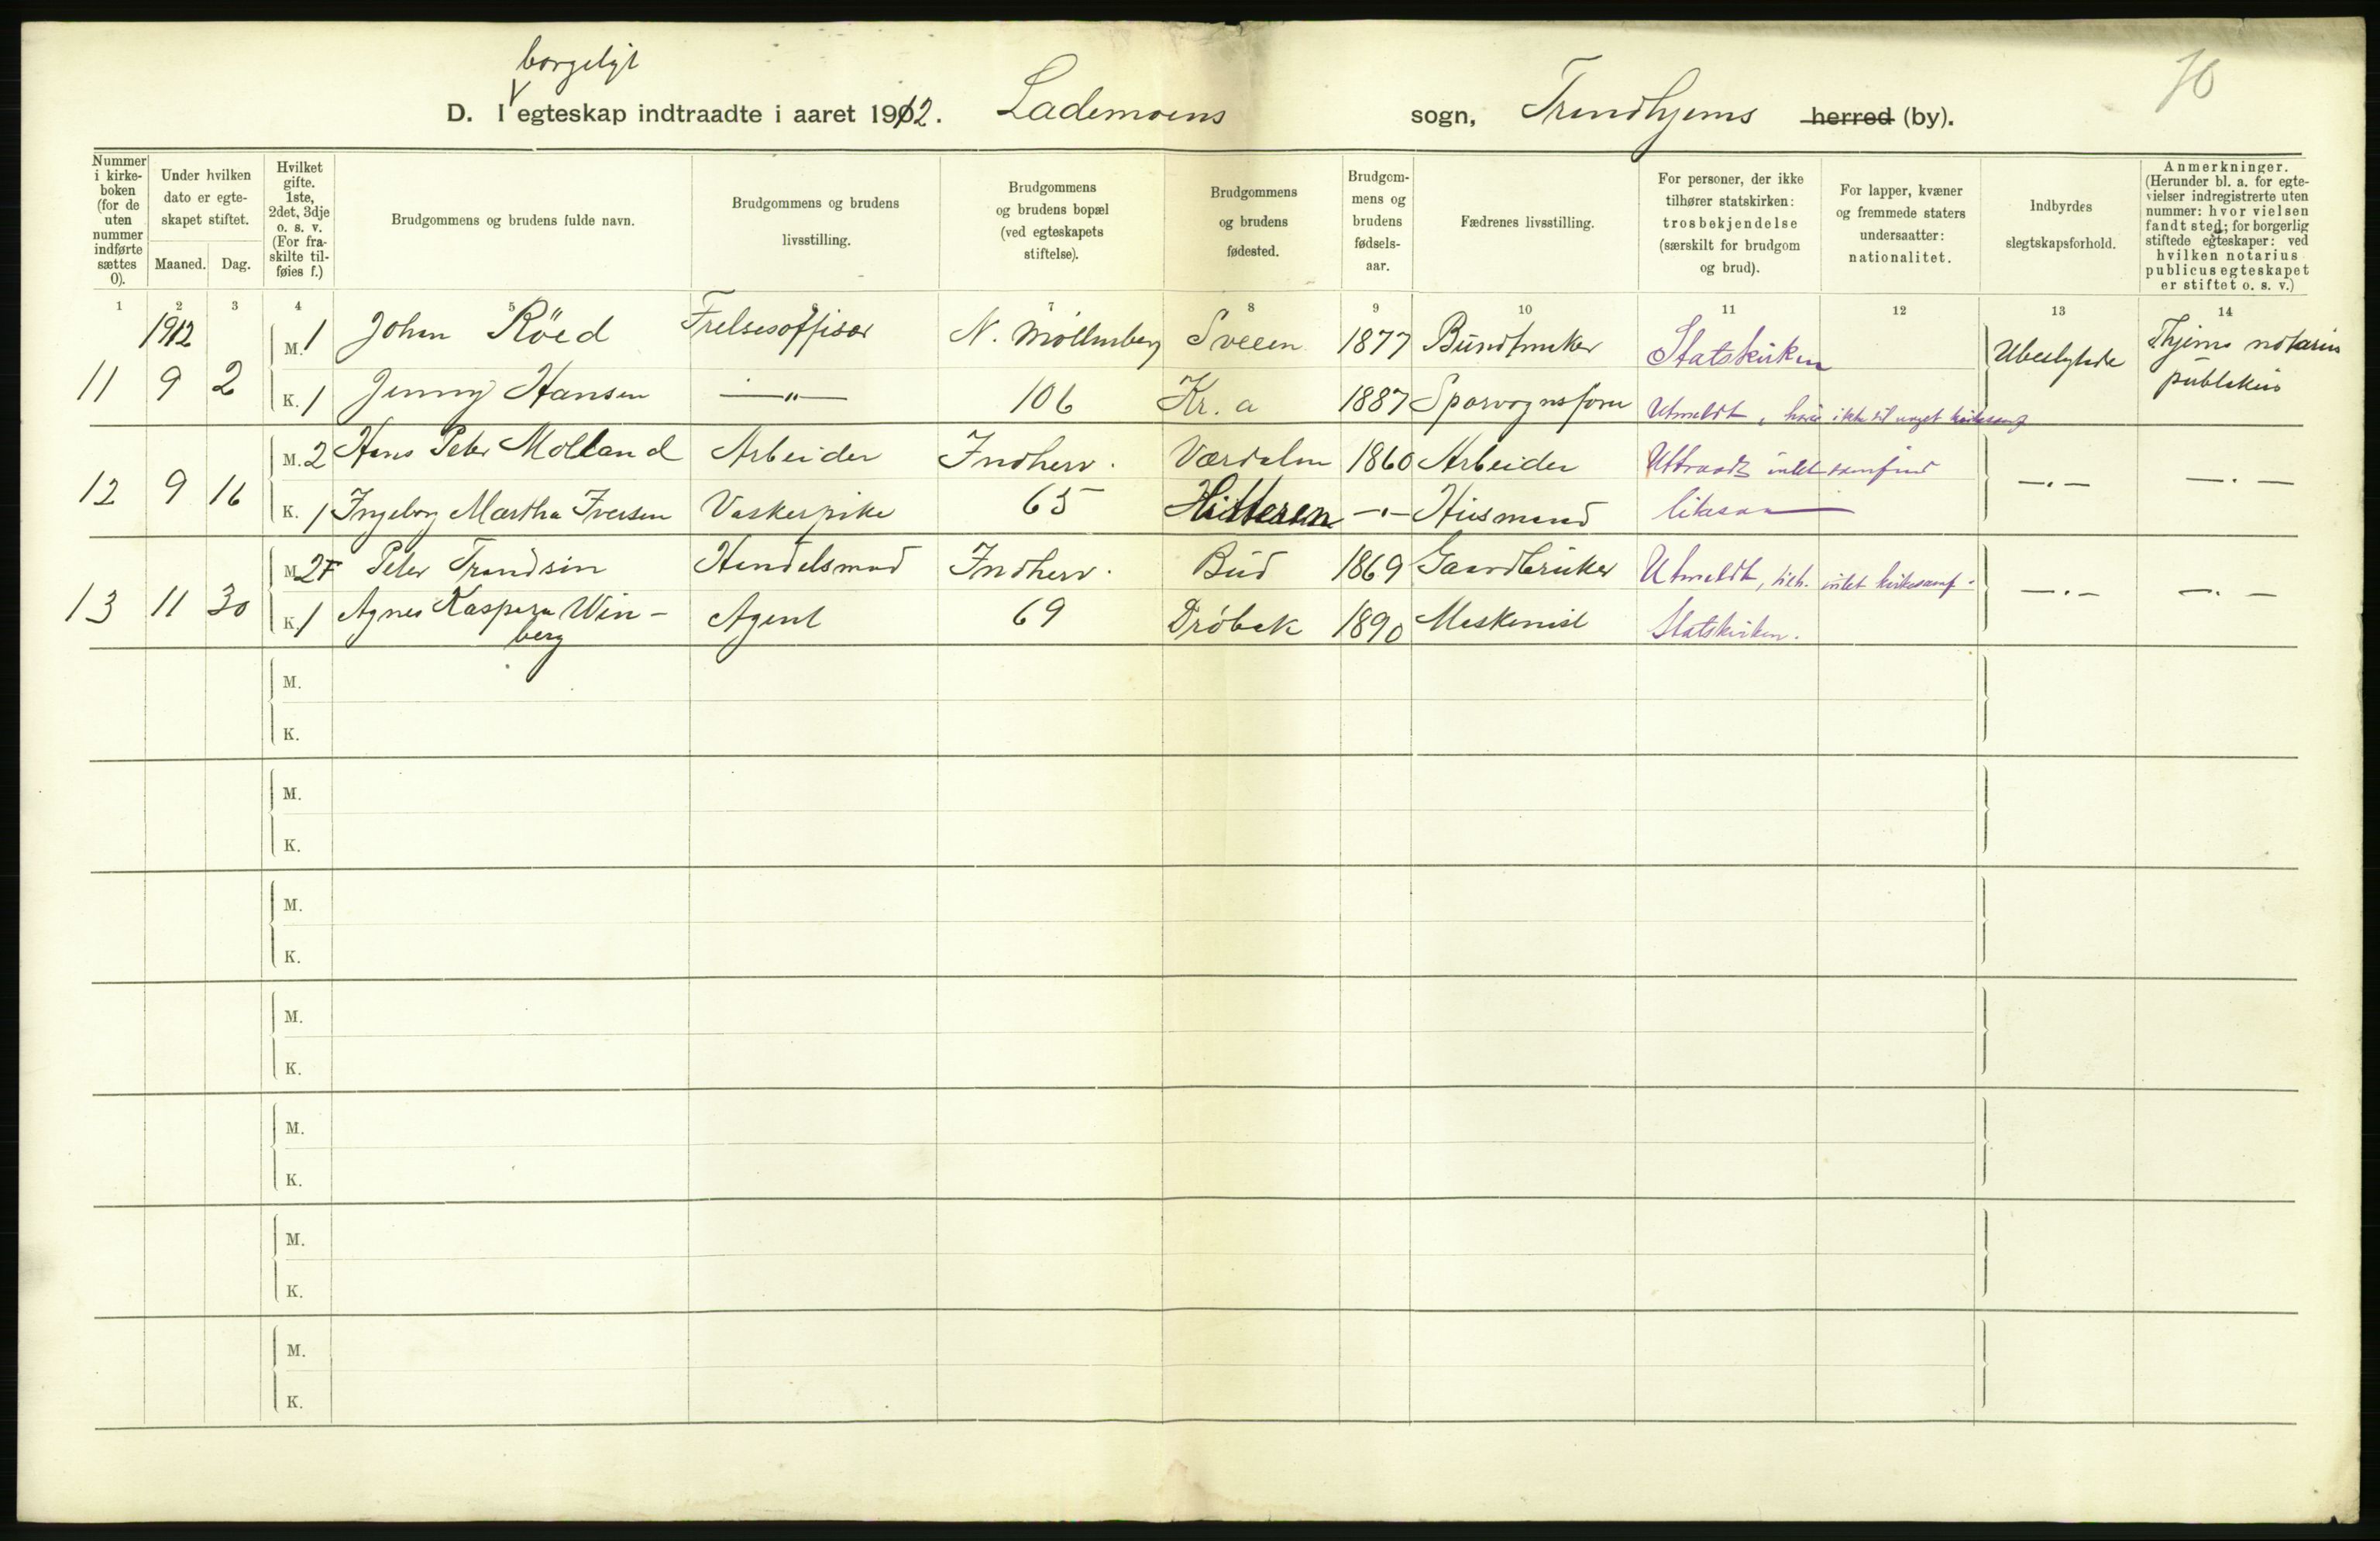 borgeligt
70
D. I egteskap indtraadte i aaret 1912. Lademoens sogn, Trondhjems herred (by).
Nummer i kirkeboken (for de uten nummer indførte sættes 0).
Under hvilken dato er egteskapet stiftet.
Maaned. Dag.
Hvilket gifte. 1ste, 2det, 3dje o. s. v. (For fraskilte tilføies f.)
Brudgommens og brudens fulde navn.
Brudgommens og brudens livsstilling.
Brudgommens og brudens bopæl (ved egteskapets stiftelse).
Brudgommens og brudens fødested.
Brudgommens og brudens fødselsaar.
Fædrenes livsstilling.
For personer, der ikke tilhører statskirken: trosbekjendelse (særskilt for brudgom og brud).
For lapper, kvæner og fremmede staters undersaatter: nationalitet.
Indbyrdes slegtskapsforhold.
Anmerkninger. (Herunder bl. a. for egtevielser indregistrerte uten nummer: hvor vielsen fandt sted; for borgerlig stiftede egteskaper: ved hvilken notarius publicus egteskapet er stiftet o. s. v.)
1 2 3 4 5 6 7 8 9 10 11 12 13 14
1912 M. 1 Johan Röed Frelsesoffiser N. Møllenberg Sveen 1877 Buntmaker Statskirken Ubeslegtede Thjems notarius
11 9 2 K. 1 Jenny Hansen —"— 106 Kr.a 1887 Sporvognsform Utmeldt, hører ikke til noget kirkesamf publikus
M. 2 Hans Peter Molland Arbeider Indherv. Værdalen 1860 Arbeider Uttraadt intet samfund
12 9 16 K. 1 Ingeborg Martha Iversen Vaskerpike 65 Hitteren —"— Husmand likesaa —"— —"—
M. 2F Peter Trondsin Handelsmand Indherv. Bud 1869 Gaardbruker Utmeldt, tilh. intet kirkesamf.
13 11 30 K. 1 Agnes Kaspera Win- Agent 69 Drøbak 1890 Maskinist Statskirken. —"— —"—
berg
M.
K.
M.
K.
M.
K.
M.
K.
M.
K.
M.
K.
M.
K.